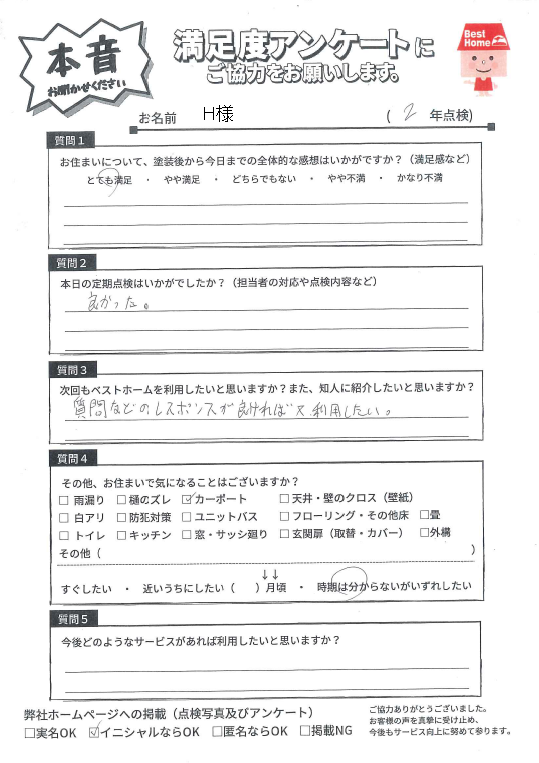 本音
お聞かせください
満足度アンケートに
ご協力をお願いします。
Best
Home
お名前 H様 ( 2 年点検)
質問1
お住まいについて、塗装後から今日までの全体的な感想はいかがですか？（満足感など）
とても満足 ・ やや満足 ・ どちらでもない ・ やや不満 ・ かなり不満
質問2
本日の定期点検はいかがでしたか？（担当者の対応や点検内容など）
良かった。
質問3
次回もベストホームを利用したいと思いますか？また、知人に紹介したいと思いますか？
質問などのレスポンスが良ければ又利用したい。
質問4
その他、お住まいで気になることはございますか？
□ 雨漏り □ 樋のズレ ☑ カーポート □ 天井・壁のクロス（壁紙）
□ 白アリ □ 防犯対策 □ ユニットバス □ フローリング・その他床 □畳
□ トイレ □ キッチン □ 窓・サッシ廻り □ 玄関扉（取替・カバー） □外構
その他（ ）
↓↓
すぐしたい ・ 近いうちにしたい（ ）月頃 ・ 時期は分からないがいずれしたい
質問5
今後どのようなサービスがあれば利用したいと思いますか？
弊社ホームページへの掲載（点検写真及びアンケート）
□実名OK ☑イニシャルならOK □匿名ならOK □掲載NG
ご協力ありがとうございました。
お客様の声を真摯に受け止め、
今後もサービス向上に努めて参ります。